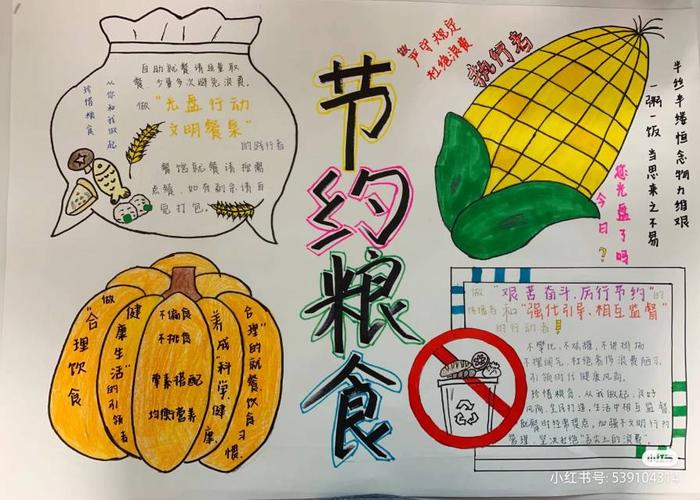 节约粮食
自助就餐请适量取
餐、少量多次避免浪费。
做"光盘行动
文明餐桌"
的践行者
餐馆就餐请按需
点餐,如有剩余请自
觉打包。
从你和我做起
珍惜粮食
做
严守规定
杜绝浪费
执行者
半丝半缕恒念物力维艰
一粥一饭当思来之不易
您光盘了吗
今日?
做
"合理饮食
健康生活"的引领者
不偏食
不挑食
荤素搭配
均衡营养
养成"科学、健康、
合理"的就餐饮食习惯.
做"艰苦奋斗、厉行节约"的
传播者和"强化引导、相互监督"
的行动者!
不攀比、不炫耀、不讲排场
不摆阔气、杜绝奢侈浪费陋习
引领时代健康风尚。
珍惜粮食、从我做起、良好
风尚、全民打造,生活中相互监督
就餐时经常提点,加强不文明行为
管理,坚决杜绝"舌尖上的浪费".
小红书
小红书号: 539104314